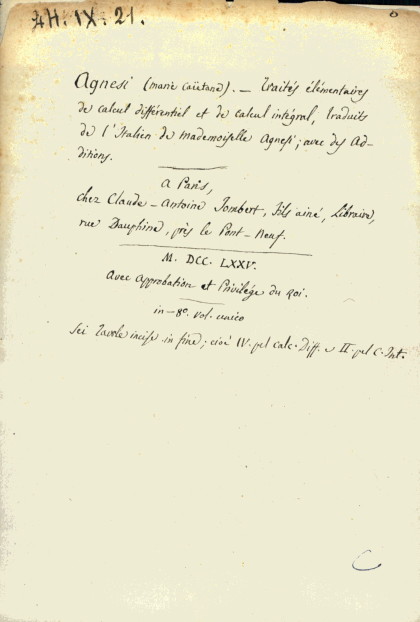 4H. IX. 21.
Agnesi (marie caëtane). — Traités élémentaires
de calcul différentiel et de calcul intégral, traduits
de l'Italien de mademoiselle Agnesi; avec des Ad-
ditions.
A Paris,
chez Claude-Antoine Jombert, fils ainé, Libraire,
rue Dauphine, près le Pont-Neuf.
M. DCC. LXXV.
Avec approbation et Privilége du Roi.
in-8°. vol. unico
Sei Tavole incise in fine; cioè IV. pel Calc. Diff. e II. pel C. Int.